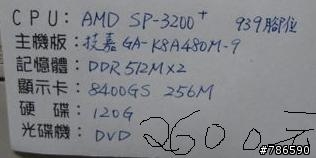 CPU: AMD SP-3200+ 939腳位
主機版: 技嘉 GA-K8A480M-9
記憶體: DDR 512M×2
顯示卡: 8400GS 256M
硬碟: 120G
光碟機: DVD 2600元
#786590